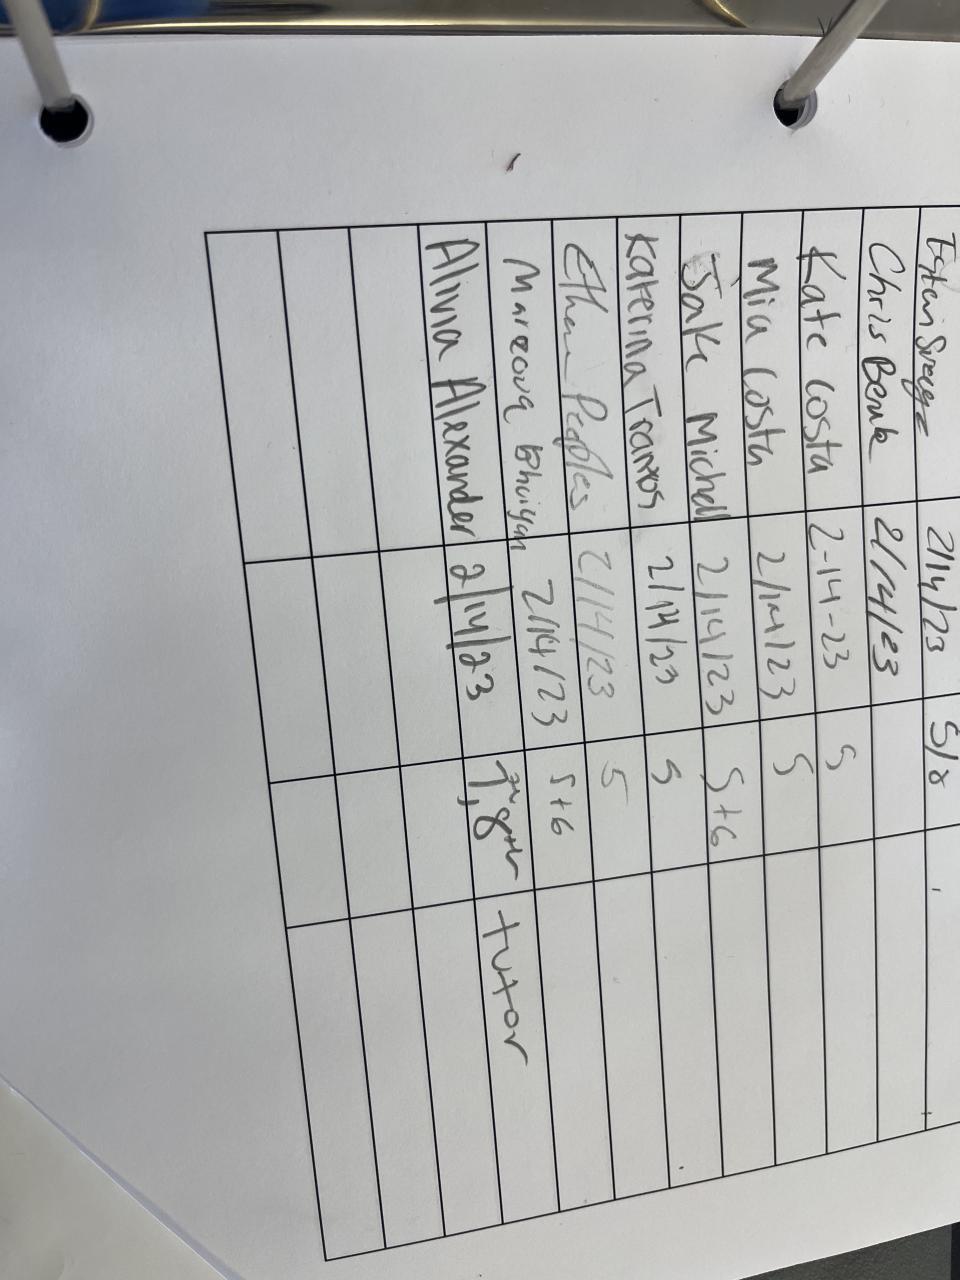 2/14/23 5/8
Chris Benk 2/14/23
Kate Costa 2-14-23 5
Mia Costa 2/14/23 5
Jake Michell 2/14/23 5+6
Katerina Tramos 2/14/23 5
Ethan Peoples 2/14/23 5
Marzouq Bhuiyan 2/14/23 5+6
Alivia Alexander 2/14/23 7,8th tutor